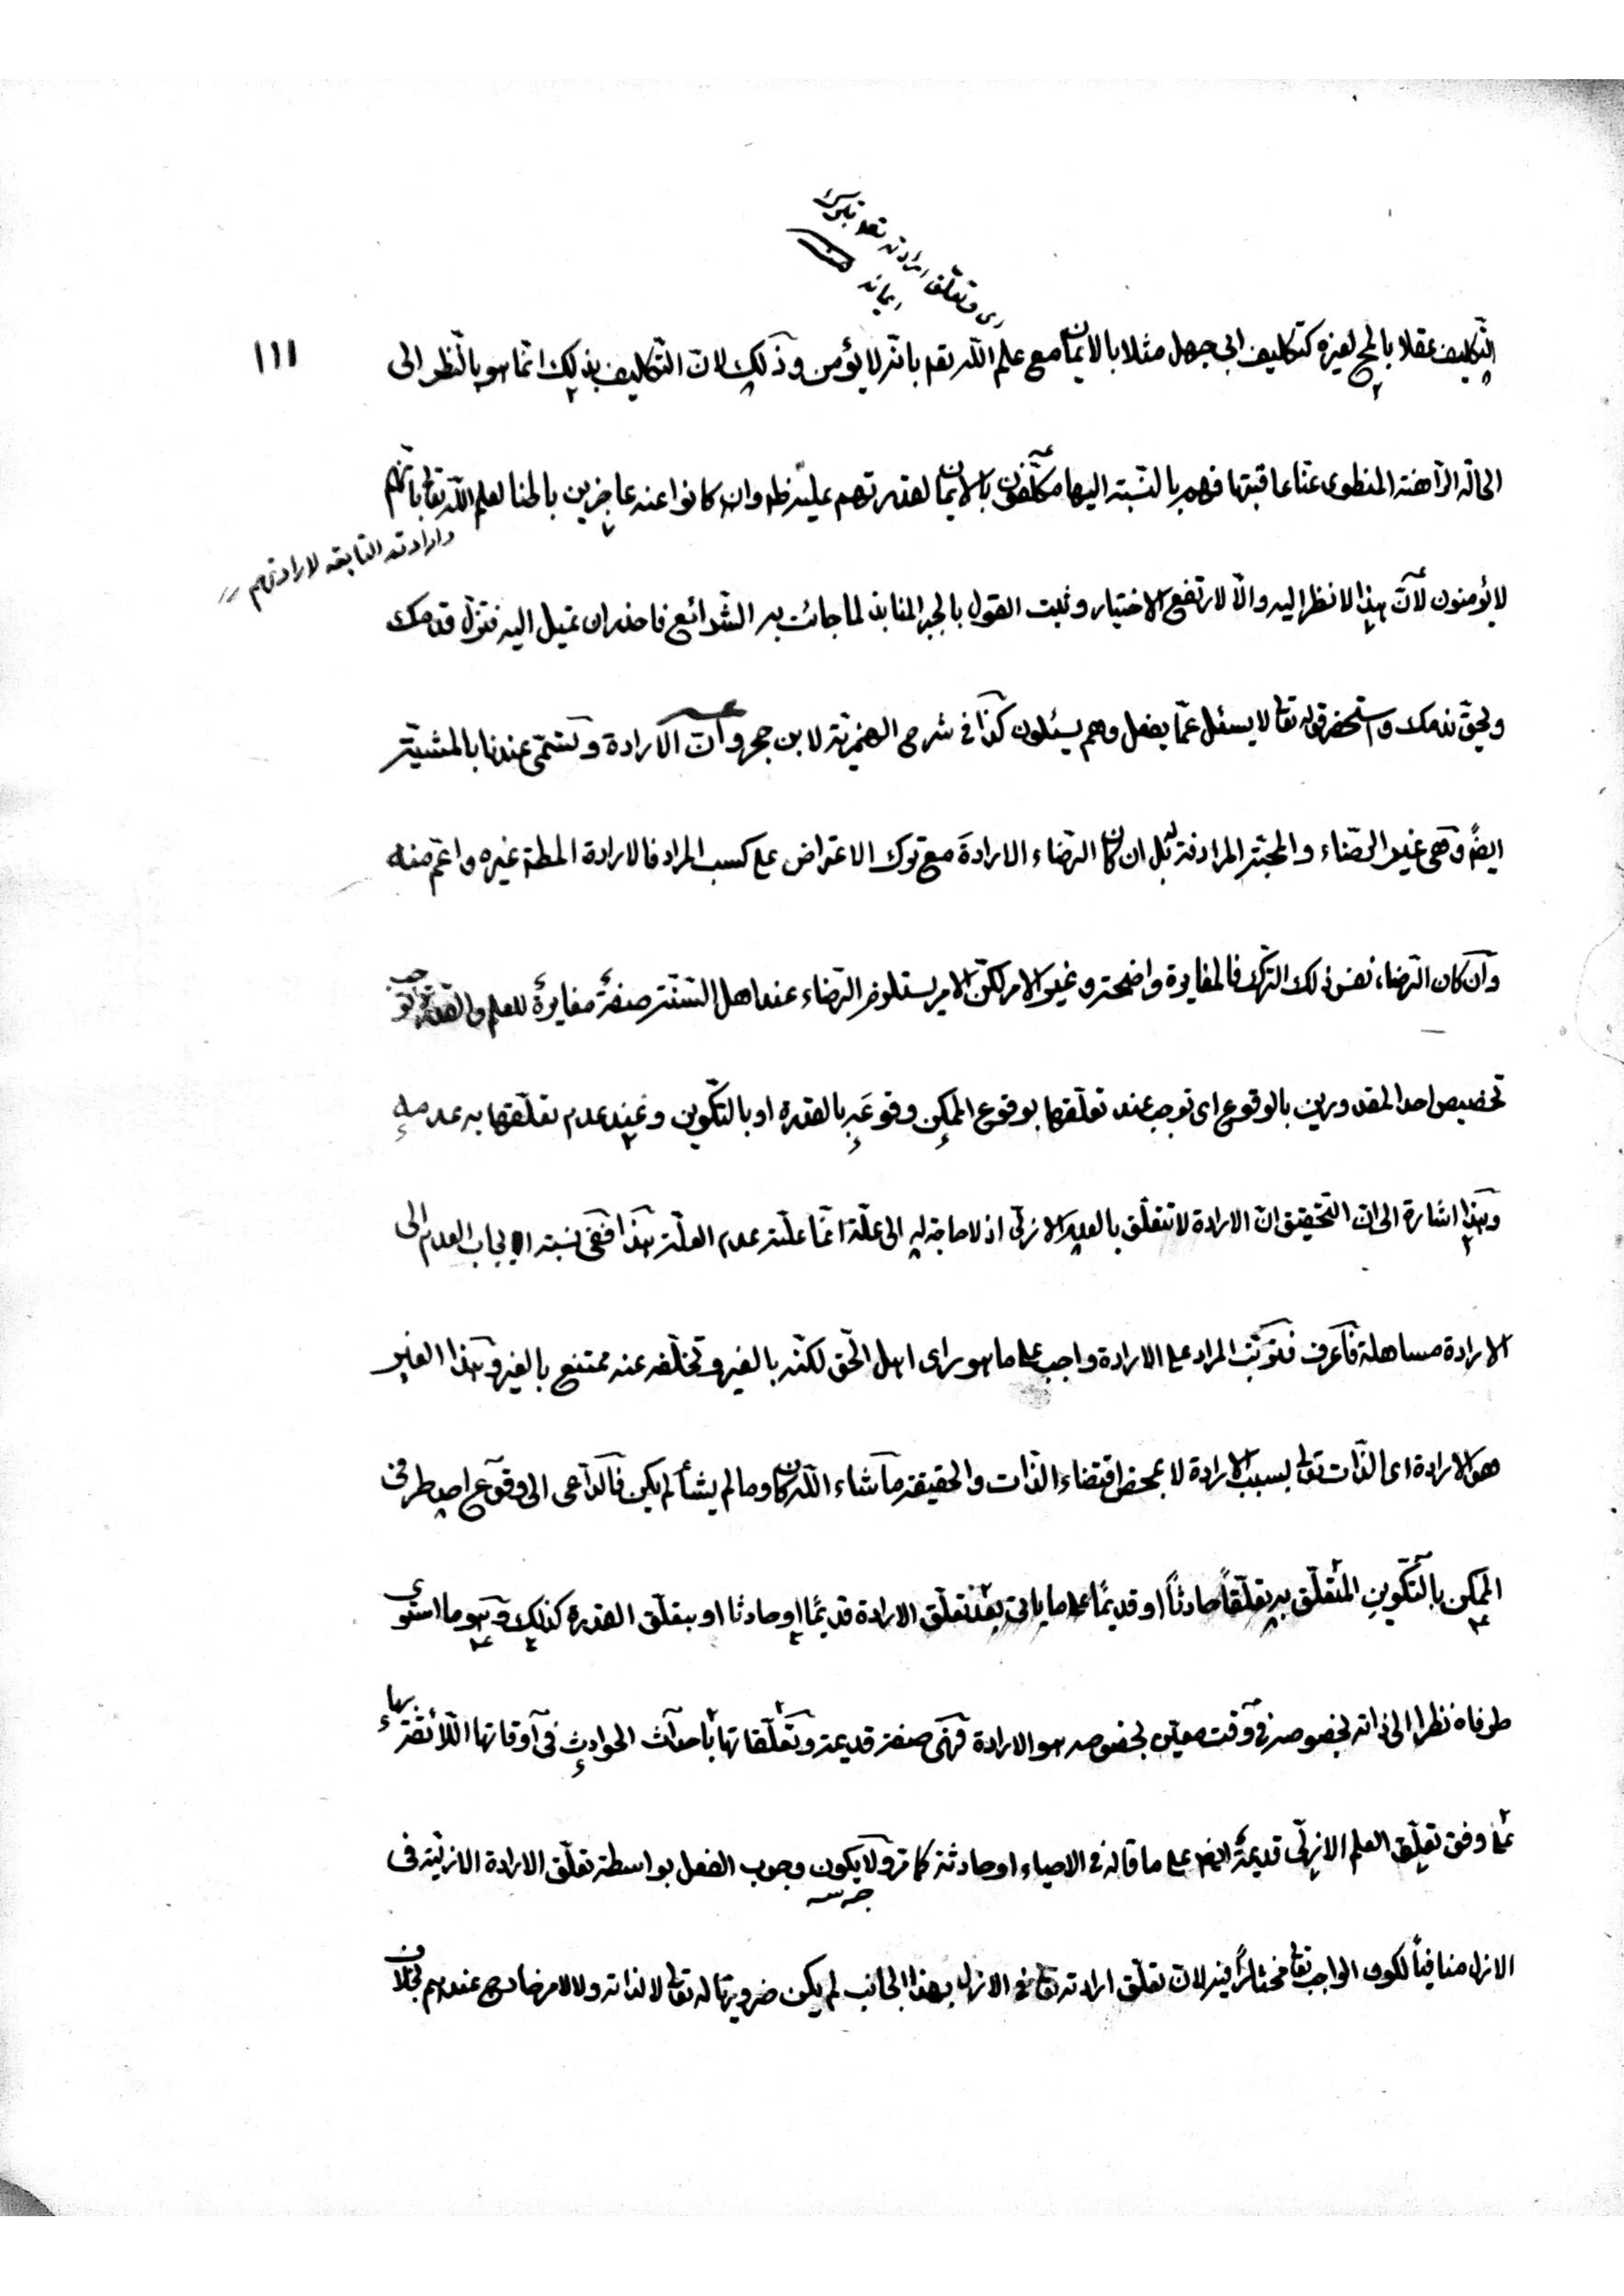 اى وتعلّق ارادته تعه بترك
ايمانه منه
١١١
التّكليف عقلا بالمح لغيره كتكليف ابى جهل مثلا بالايمان مع علم اللّه تعه بانّه لا يؤمن وذلك لانّ التّكليف بذلك انّما هو بالنّظر الى
الحالة الرّاهنة المنطوى عنّا عاقبتها فهم بالنّسبة اليها مكلّفون بالايمان لقدرتهم عليه ظه وان كانوا عنه عاجزين باطنا لعلم اللّه تعا بانّهم
وارادته التابعة لارادتهم //
لا يؤمنون لانّ هذا لا نظر اليه والّا لارتفع الاختيار وثبت القول بالجبر المنابذ لما جائت به الشّرائع فاحذر ان تميل اليه فتزلّ قدمك
ويحقّ ندمك واستحضر قوله تعا لا يسئل عمّا يفعل وهم يسئلون كذا فى شرح الهمزيّة لابن حجر وانّ الارادة وتسمّى عندنا بالمشيّة
ايضً وهى غير الرّضاء والمحبّة المرادفة له بل ان كان الرّضاء الارادة مع ترك الاعتراض على كسب المراد فالارادة المطة غيره واعمّ منه
وان كان الرّضاء نفس ذلك التّرك فالمغايرة واضحة وغير الامر لكنّ الامر يستلزم الرّضاء عند اهل السّنّة صفةٌ مغايرةٌ للعلم والقدرة توجب
تخصيص احد المقدورين بالوقوع اى توجب عند تعلّقها بوقوع الممكن وقوعَه بالقدرة او بالتّكوين وعند عدم تعلّقها به عدمه
وهذا اشارة الى انّ التّحقيق انّ الارادة لا تتعلّق بالعدم الازلىّ اذ لا حاجة له الى علّة انّما علّته عدم العلّة هذا ففى نسبة ايجاب العدم الى
الارادة مساهلة فاعرف فترتّب المراد على الارادة واجب على ما هو راى اهل الحّق لكنّه بالغير وتخلّفه عنه ممتنع بالغير وهذا الغير
هو الارادة اى الذّات تعا بسبب الارادة لا بمحض اقتضاء الذّات والحقيقة ما شاء اللّه كان وما لم يشأ لم يكن فالدّاعى الى وقوع احد طرفى
الممكن بالتّكوين المتعلّق به تعلّقاً حادثاً او قديمًا على ما ياتى بعد تعلّق الارادة قديمًا او حادثا او بتعلّق القدرة كذلك وهو ما استوى
طرفاه نظرا الى ذاته بخصوصه فى وقت معيّن بخصوصه هو الارادة فهى صفة قديمة وتعلّقاتها باحداث الحوادث فى اوقاتها اللّائقة بها
على وفق تعلّق العلم الازلىّ قديمةٌ ايضً على ما قاله فى الاحياء او حادثة كما مرّ ولا يكون وجوب الفعل بواسطة تعلّق الارادة الازليّة فى
الازل منافياً لكون الواجب تعا مختاراً فيه لانّ تعلّق ارادته تعا فى الازل بهذا الجانب لم يكن ضروريّا له تعا لا لذاته ولا لامر خارج عندهم بخلاف